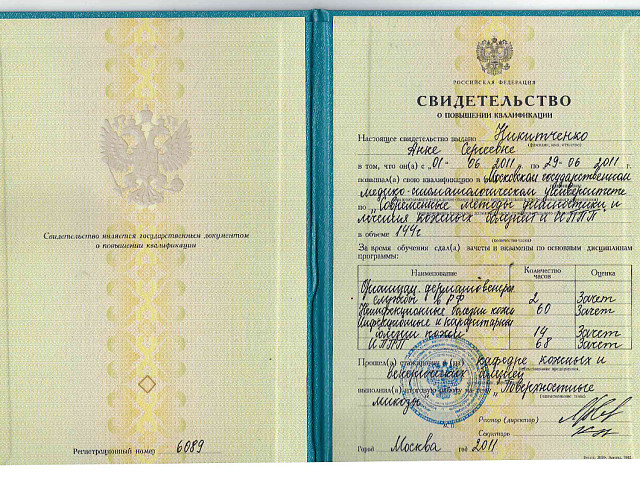 Свидетельство является государственным документом
о повышении квалификации
Регистрационный номер 6089
РОССИЙСКАЯ ФЕДЕРАЦИЯ
СВИДЕТЕЛЬСТВО
О ПОВЫШЕНИИ КВАЛИФИКАЦИИ
Настоящее свидетельство выдано Никитченко
(фамилия, имя, отчество)
Анне Сергеевне
в том, что он(а) с „01“ 06 2011 г. по „29“ 06 2011 г.
повышал(а) свою квалификацию в Московском государственном
медико-стоматологическом университете
по „Современные методы диагностики и
лечения кожных болезней и ИППП“
в объеме 144 ч
(количество часов)
За время обучения сдал(а) зачеты и экзамены по основным дисциплинам
программы:
Наименование Количество часов Оценка
Организац. дерматовенеро
службы в РФ 2 Зачет
Неинфекционные болезни кожи 60 Зачет
Инфекционные и паразитарные
болезни кожи 14 Зачет
ИППП 68 Зачет
Прошел(а) стажировку в (на) кафедре кожных и
венерических болезней
выполнил(а) итоговую работу на тему „Поверхностные
(наименование темы)
микозы“
Ректор (директор)
Секретарь
Город Москва год 2011